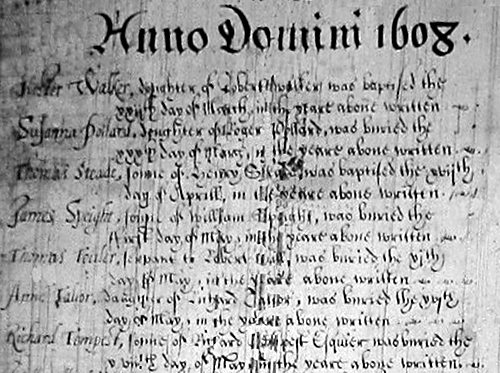 Anno Domini 1608.
Walker, doughter of Robert Walker was baptised the
day of March, in the yeare above written
Susanna Pollard, doughter of Roger Pollard, was buried the
day of Marc, in the yeare above written
Thomas Steade, sonne of Henry was baptised the
day of Aprill, in the yeare above written
James Speight, sonne of William Speight, was buried the
first day of May, in the yeare above written
Thomas servant to Robert Hall, was buried the
day of May, in the yeare above written
Anne Tailor, daughter of Richard Tailor, was buried the
day of May, in the yeare above written
Richard Tempest, sonne of Richard Tempest Esquier was buried the
day of May in the yeare above written.